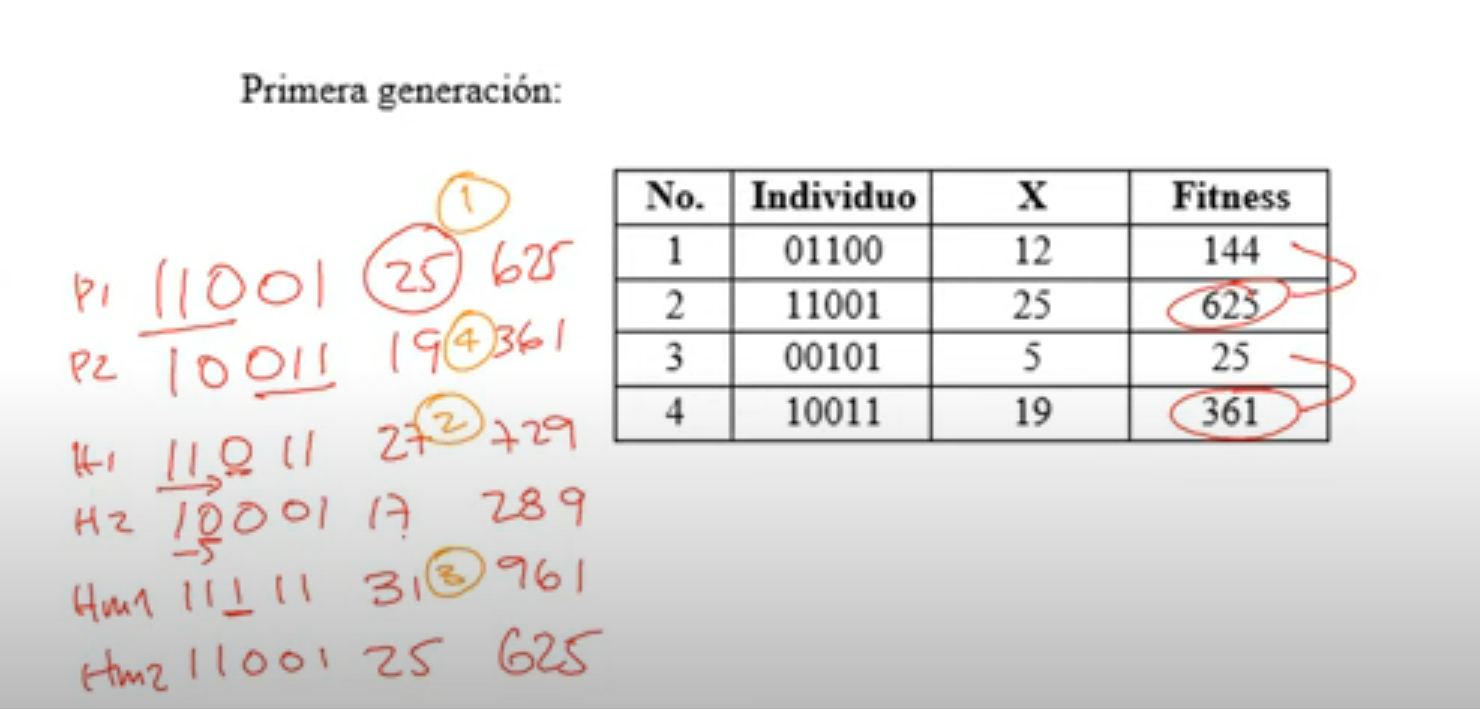 Primera generación:
1
P1 11001 25 625
P2 10011 19 4 361
H1 11011 27 2 729
H2 10001 17 289
-5
Hm1 11111 31 3 961
Hm2 11001 25 625
No. Individuo X Fitness
1 01100 12 144
2 11001 25 625
3 00101 5 25
4 10011 19 361